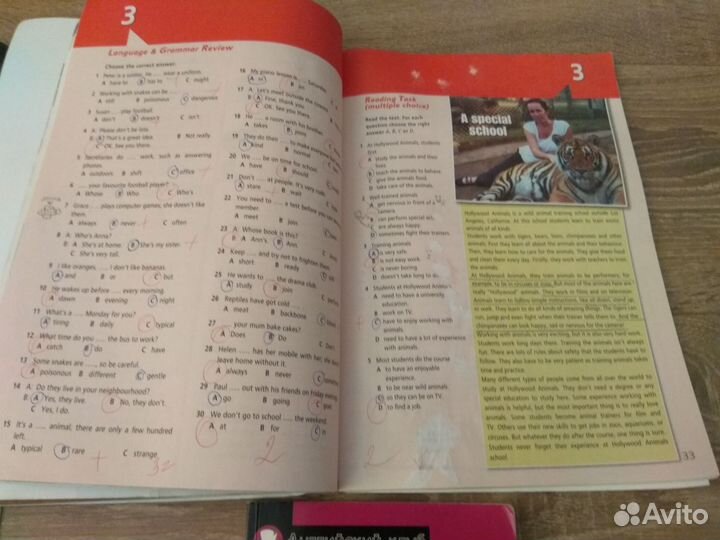 3
Language & Grammar Review
Choose the correct answer.
1 Peter is a soldier. He .... wear a uniform.
A have to B has to C might
2 Working with snakes can be ....
A still B poisonous C dangerous
3 Susan .... play football.
A don't B doesn't C isn't
4 A: Please don't be late.
B: A That's a great idea. B Not really.
C OK. See you there.
5 Secretaries do .... work, such as answering
phones.
A outdoors B shift C office
6 .... your favourite football player?
A Whose B Who C Who's
7 Grace .... plays computer games; she doesn't like
them.
A always B never C often
8 A: Who's Anna?
B: A She's at home. B She's my sister.
C She's very tall.
9 I like oranges, .... I don't like bananas.
A and B or C but
10 He wakes up before .... every morning.
A dawn B evening C night
11 What's a .... Monday for you?
A tiring B daily C typical
12 What time do you .... the bus to work?
A catch B do C have
13 Some snakes are ...., so be careful.
A poisonous B different C gentle
14 A: Do they live in your neighbourhood?
B: A Yes, they live. B No, they don't.
C Yes, I do.
15 It's a .... animal; there are only a few hundred
left.
A typical B rare C strange
16 My piano lesson is .... Saturday.
A on
17 A: Let's meet outside the cinema
B: A Fine, thank you.
C OK. See you there.
18 He .... a room with his brother.
A takes B joins
19 They do their .... to make everyone
A kind B normal
20 We .... be on time for school.
A have B should
21 Don't .... at people. It's very rude.
A stare B wait
22 You need to .... a test before you can
member.
A meet B join
23 A: Whose book is this?
B: A Ann's. B Ann
24 Keep .... and try not to frighten them.
A short B ready
25 He wants to .... the drama club.
A study B join
26 Reptiles have got cold ....
A meat B backbone
27 .... your mum bake cakes?
A Does B Do C Don't
28 Helen .... has her mobile with her; she
leave home without it.
A always B never
29 Paul .... out with his friends on Friday evening
A go B going C goes
30 We don't go to school .... the weekend.
A at B for C in
32
2
3
Reading Task
(multiple choice)
Read the text. For each
question choose the right
answer A, B, C or D.
1 At Hollywood Animals, students
first
A study the animals and their
lives.
B teach the animals to behave.
C give the animals food.
D take care of the animals.
2 Well-trained animals
A get nervous in front of a
camera.
B can perform special acts.
C are always happy.
D sometimes fight their trainers.
3 Training animals
A is very safe.
B is not easy work.
C is never boring.
D doesn't take long to do.
4 Students at Hollywood Animals
A need to have a university
education.
B work on TV.
C have to enjoy working with
animals.
D need to have a lot of experience
with animals.
5 Most students do the course
A to have an enjoyable
experience.
B to be near wild animals.
C so they can be on TV.
D to find a job.
A special
school
Hollywood Animals is a wild animal training school outside Los
Angeles, California. At this school students learn to train exotic
animals of all kinds.
Students work with tigers, bears, lions, chimpanzees and other
animals. First they learn all about the animals and their behaviour.
Then, they learn how to care for the animals. They give them food
and clean them every day. Finally, they work with teachers to train
the animals.
At Hollywood Animals, they train animals to be performers, for
example, to be in circuses or zoos. But most of the animals here are
really "Hollywood" animals. They work in films and on television.
Animals learn to follow simple instructions, like sit down, stand up
to walk. They learn to do all kinds of amazing things. The tigers can
run, jump and even fight when their trainer tells them to. And the
chimpanzees can look happy, sad or nervous for the camera!
Working with animals is very exciting, but it is also very hard work.
Students work long days there. Training the animals isn't always
fun. There are lots of rules about safety that the students have to
follow. They also have to be very patient as training animals takes
time and practice.
Many different types of people come from all over the world to
study at Hollywood Animals. They don't need a degree or any
special education to study here. Some experience working with
animals is helpful, but the most important thing is to really love
animals. Some students become animal trainers for film and
TV. Others use their new skills to get jobs in zoos, aquariums, or
circuses. But whatever they do after the course, one thing is sure.
Students never forget their experience at Hollywood Animals
school.
33
Английский клуб
Avito